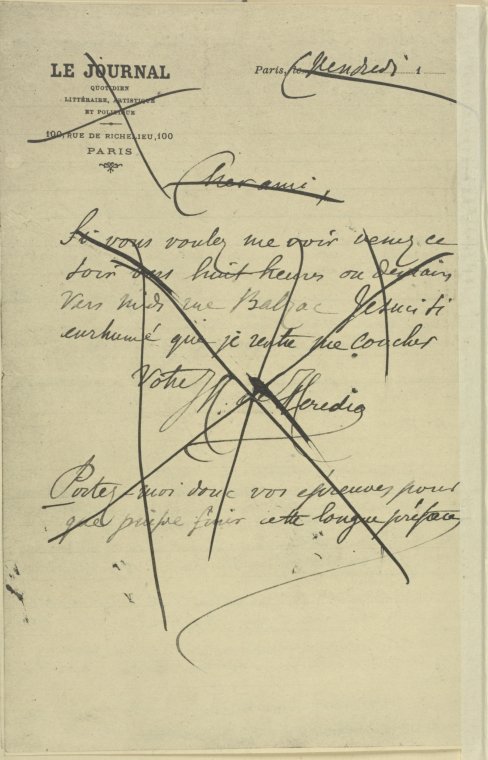 LE JOURNAL
QUOTIDIEN
LITTÉRAIRE, ARTISTIQUE
ET POLITIQUE
100, RUE DE RICHELIEU, 100
PARIS
Paris, le Vendredi 1
Cher ami,
Si vous voulez me voir venez ce
soir vers huit heures ou demain
vers midi rue Balzac Je suis si
enrhumé que je rentre me coucher
Votre
J. M. de Heredia
Portez-moi donc vos épreuves pour
que puisse finir cette longue préface